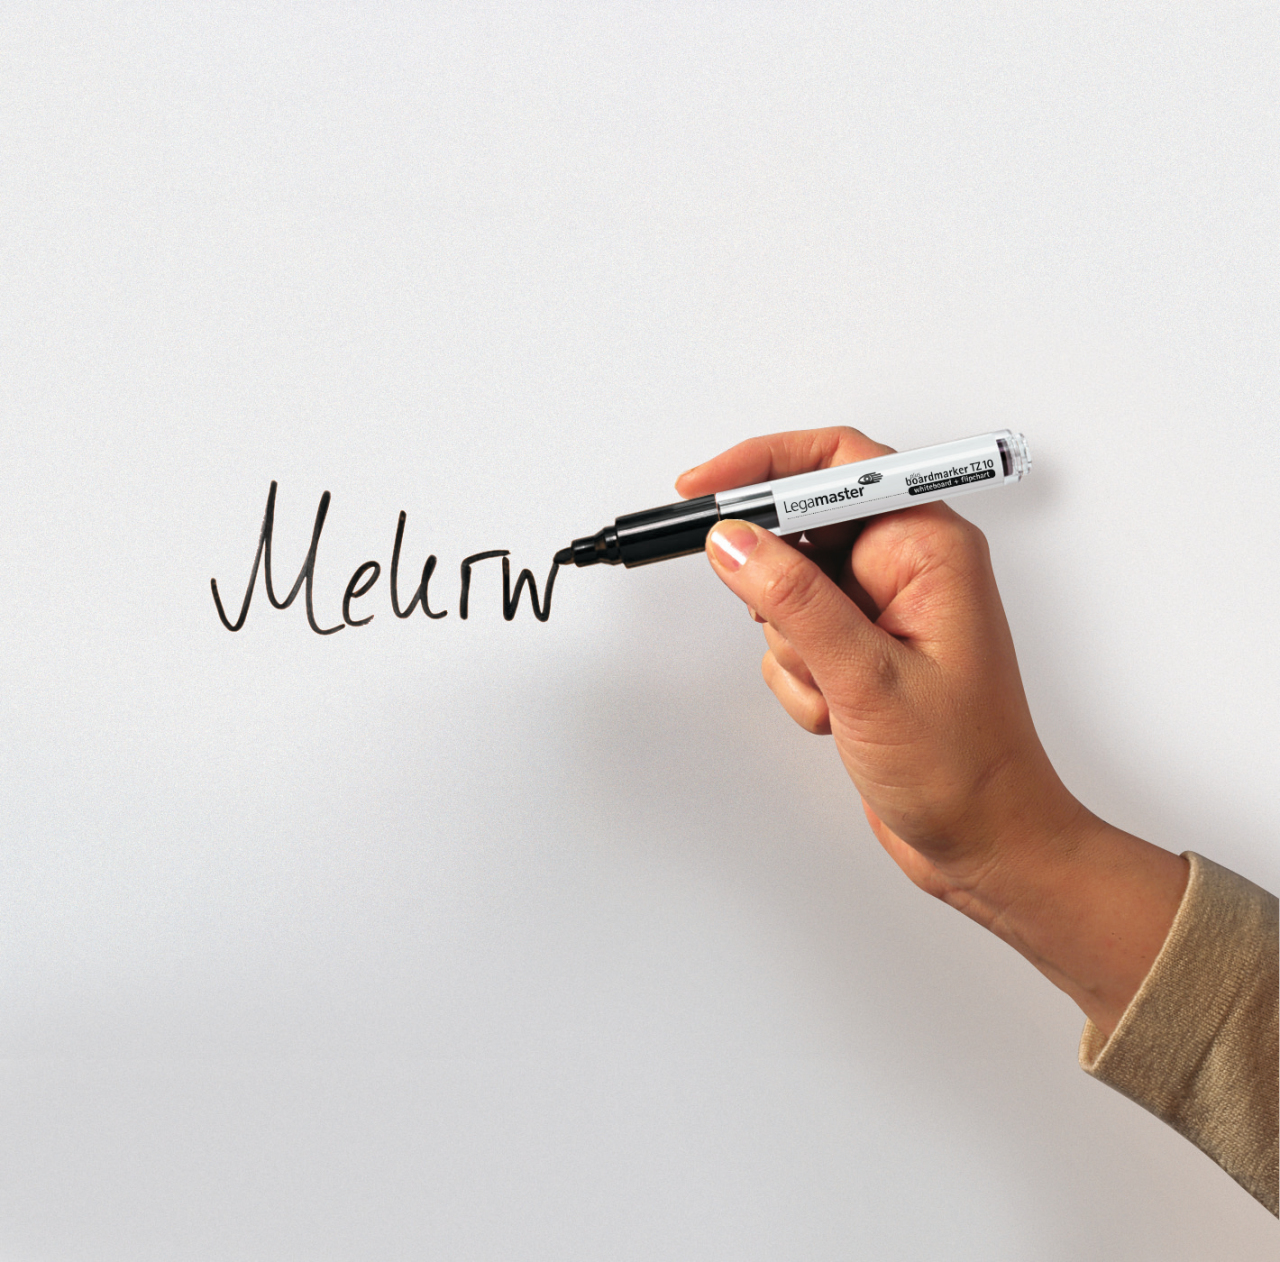 Mehrw
Legamaster
boardmarker TZ10
whiteboard + flipchart